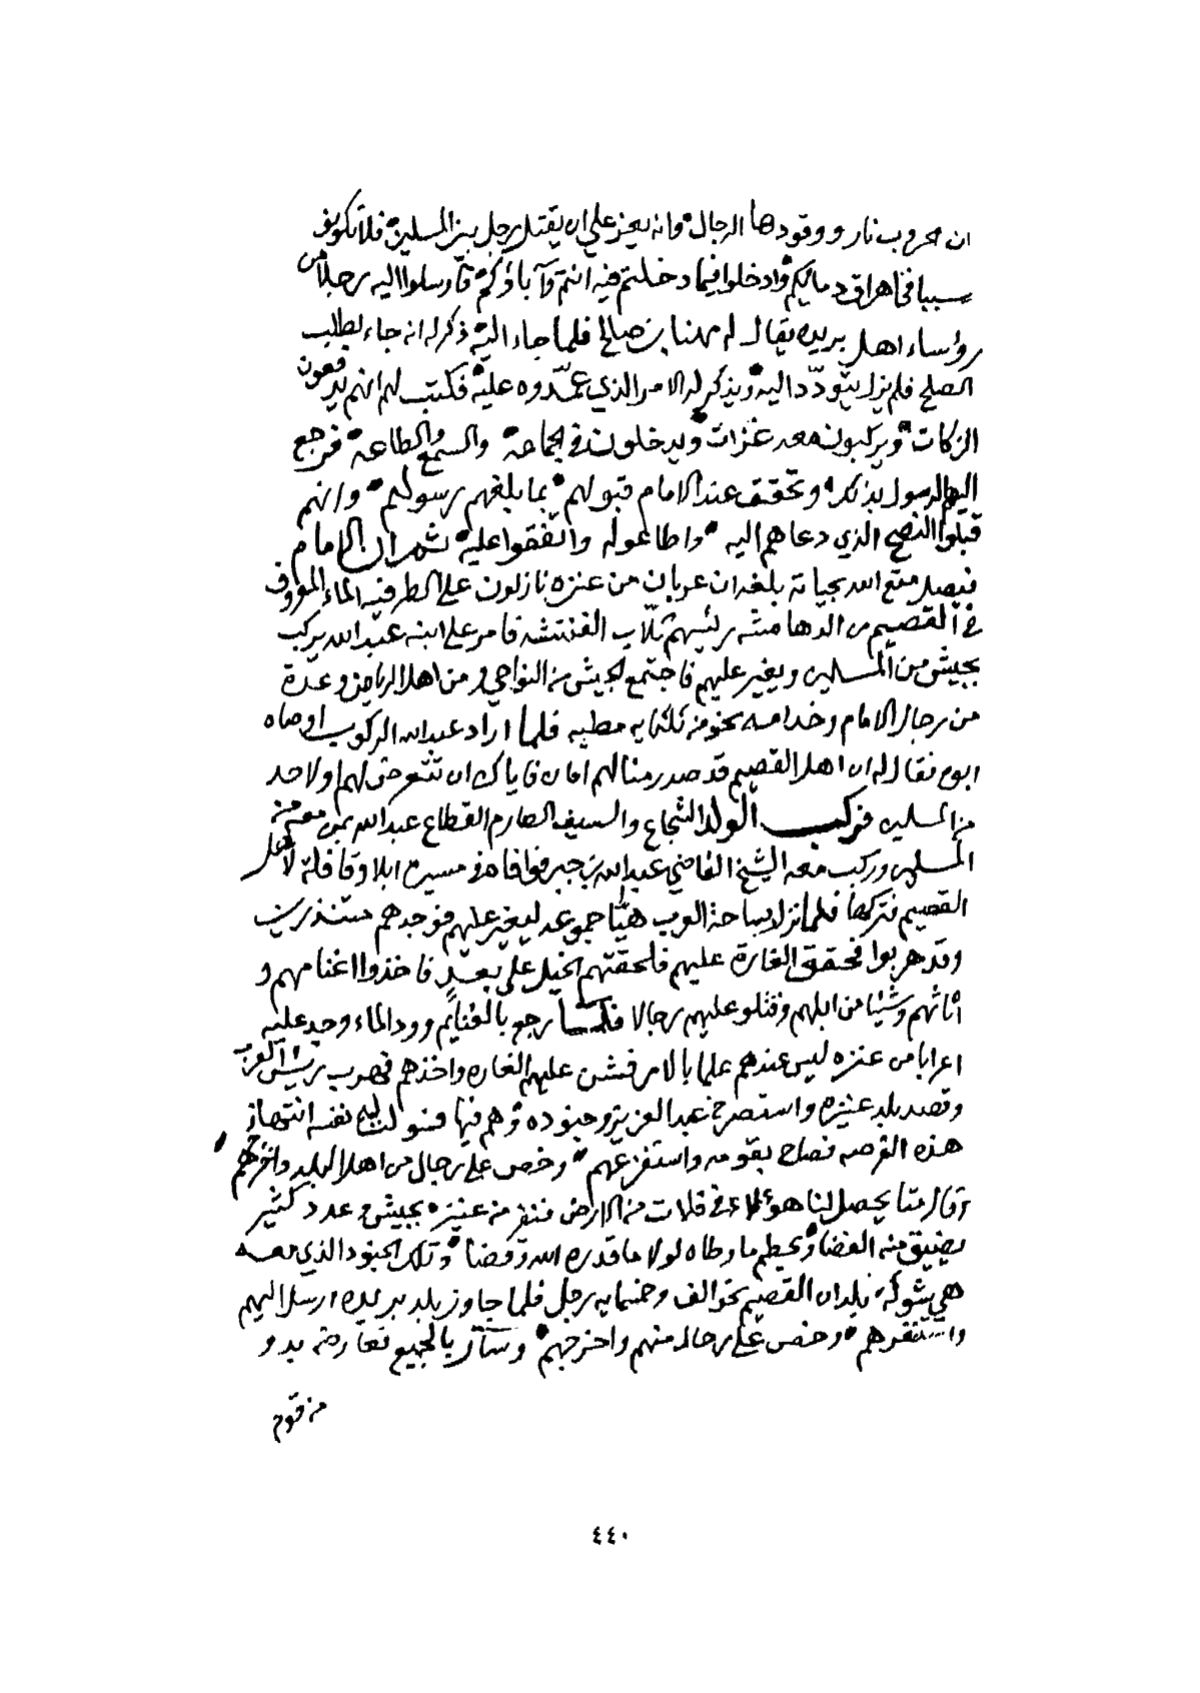 ان الحروب نار ووقودها الرجال وانه يعز علي ان يقتل رجل من المسلمين فلا تكونون
سببا في اهراق دمائكم وادخلوا فيما دخلتم فيه انتم وآباؤكم فأرسلوا اليه رجلا من
رؤساء اهل بريده يقال له مهنا بن صالح فلما جاء اليه ذكر له انه جاء لطلب
الصلح فلم يزل يتودّد اليه ويذكر له الامر الذي عمّدوه عليه فكتب لهم انهم يدفعون
الزكات ويركبون معه غزات ويدخلون في الجماعه والسمع والطاعه فرجع
اليهم الرسول بذلك وتحقق عند الامام قبولهم بما بلغهم رسولهم وانهم
قبلوا النصح الذي دعاهم اليه واطاعوا له واتفقوا عليه ثم ان الامام
فيصل متع الله بحياته بلغه ان عربان من عنزه نازلون على الطرفيه الماء المعروف
في القصيم من الدهامشه رئيسهم كلّاب القنتشه فامر على ابنه عبد الله يركب
بجيش من المسلمين ويغير عليهم فاجتمع الجيش من النواحي ومن اهل الرياض وعدة
من رجال الامام وخدامه نحو من ثلثمايه مطيه فلما اراد عبد الله الركوب اوصاه
ابوه فقال له ان اهل القصيم قد صدر منا لهم امان فاياك ان تتعرض لهم او لاحد
من المسلمين فركب الولد الشجاع والسيف الصارم القطاع عبد الله بمن معه من
المسلمين وركب معه الشيخ القاضي عبد الله بن جبر فوافاه في مسيره ابلا وقافلة لاهل
القصيم فتركها فلما نزل بساحة العرب هيّا جموعه ليغير عليهم فوجدهم مستنذرين
وقد هربوا فحقق الغارة عليهم فلحقتهم الخيل على بعدٍ فاخذوا اغنامهم و
اثاثهم وشيئا من ابلهم وقتلو عليهم رجالا فلما رجع بالغنايم وورد الماء وجد عليه
اعرابا من عنزه ليس عندهم علما بالامر فشن عليهم الغاره واخذهم فهرب رئيس العرب
وقصد بلد عنيزه واستصرخ عبد العزيز وجنوده وهم فيها فسولت له نفسه انتهاز
هذه الفرصه فصاح بقومه واستفزعهم وخص على رجال من اهل البلد واخرجهم
وقال متا يحصل لنا هؤلاء في فلات من الارض فنفر من عنيزه بجيش وعدد كثير
يضيق منه الفضا ويحطم ما وطاه لولا ما قدره الله وقضا وتلك الجنود الذي معه
هي شوكة بلدان القصيم نحو الف وخمسمايه رجل فلما جاوز بلد بريده ارسل اليهم
واستنفرهم وخص على رجال منهم واخرجهم وسار بالجميع بدو
من قوم
٤٤٠